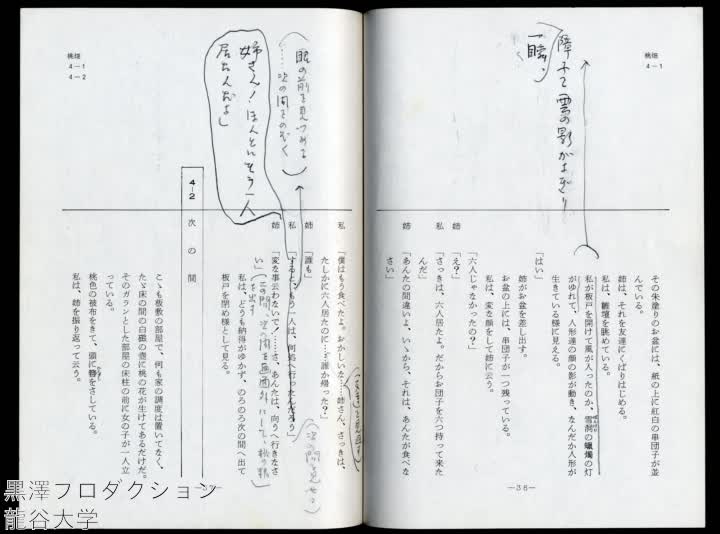 桃畑
4－1
障子に雲の影がよぎり
一瞬、
その朱塗りのお盆には、紙の上に紅白の串団子が並
んでいる。
姉は、それを友達にくばりはじめる。
私は、雛壇を眺めている。
私が板戸を開けて風が入ったのか、雪洞の蠟燭の灯
がゆれて、人形達の顔の影が動き、なんだか人形が
生きている様に見える。
「はい」
姉が盆を差し出す。
お盆の上には、串団子が一つ残っている。
私は、変な顔をして姉に云う。
「六人じゃなかったの？」
姉
「え？」
私
「さっきは、六人居た。だからお団子を六つ持って来た
んだ」
姉
「あんたの間違いよ、いゝから、それは、あんたが食べな
さい」
―36―
桃畑
4－1
4－2
私
「僕はもう食べたよ。おかしいな……姉さん、さっきは、
たしかに六人居たのに…誰か帰った？」
姉
「誰も」
私
「すると、もう一人は、何処へ行ったんだろう」
姉
「変な事云わないで！……さ、あんたは、向うへ行きなさ
い」
私は、どうも納得がゆかず、のろのろ次の間へ出て
板戸を閉め様として見る。
(眼の前を見つめる
……次の間をのぞく)
姉さん！ほんとにもう一人
居たんだよ」
(次の間を見せる)
4－2 次の間
こゝも板敷の部屋で、何も家の調度は置いてなく、
たゞ床の間の白磁の壺に桃の花が生けてあるだけだ。
そのガランとした部屋の床柱の前に女の子が一人立
っている。
桃色の被布をきて、頭に簪をさしている。
私は、姉を振り返って云う。
黒澤プロダクション
龍谷大学